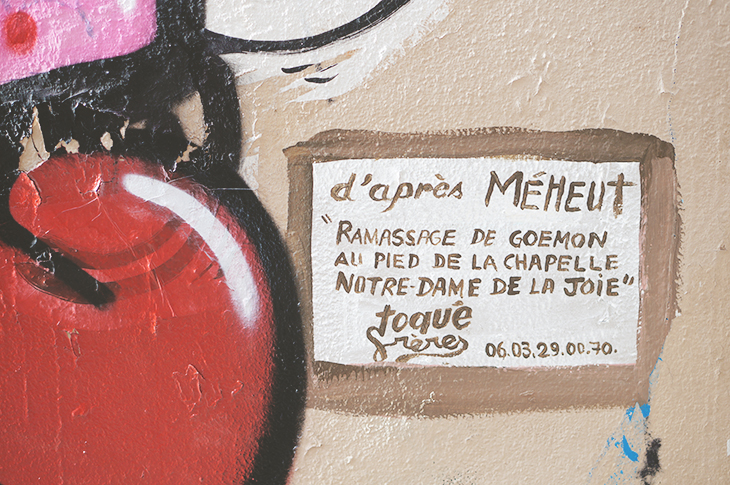 d'après MÉHEUT
"RAMASSAGE DE GOEMON
AU PIED DE LA CHAPELLE
NOTRE-DAME DE LA JOIE"
toqué
frères 06.03.29.00.70.